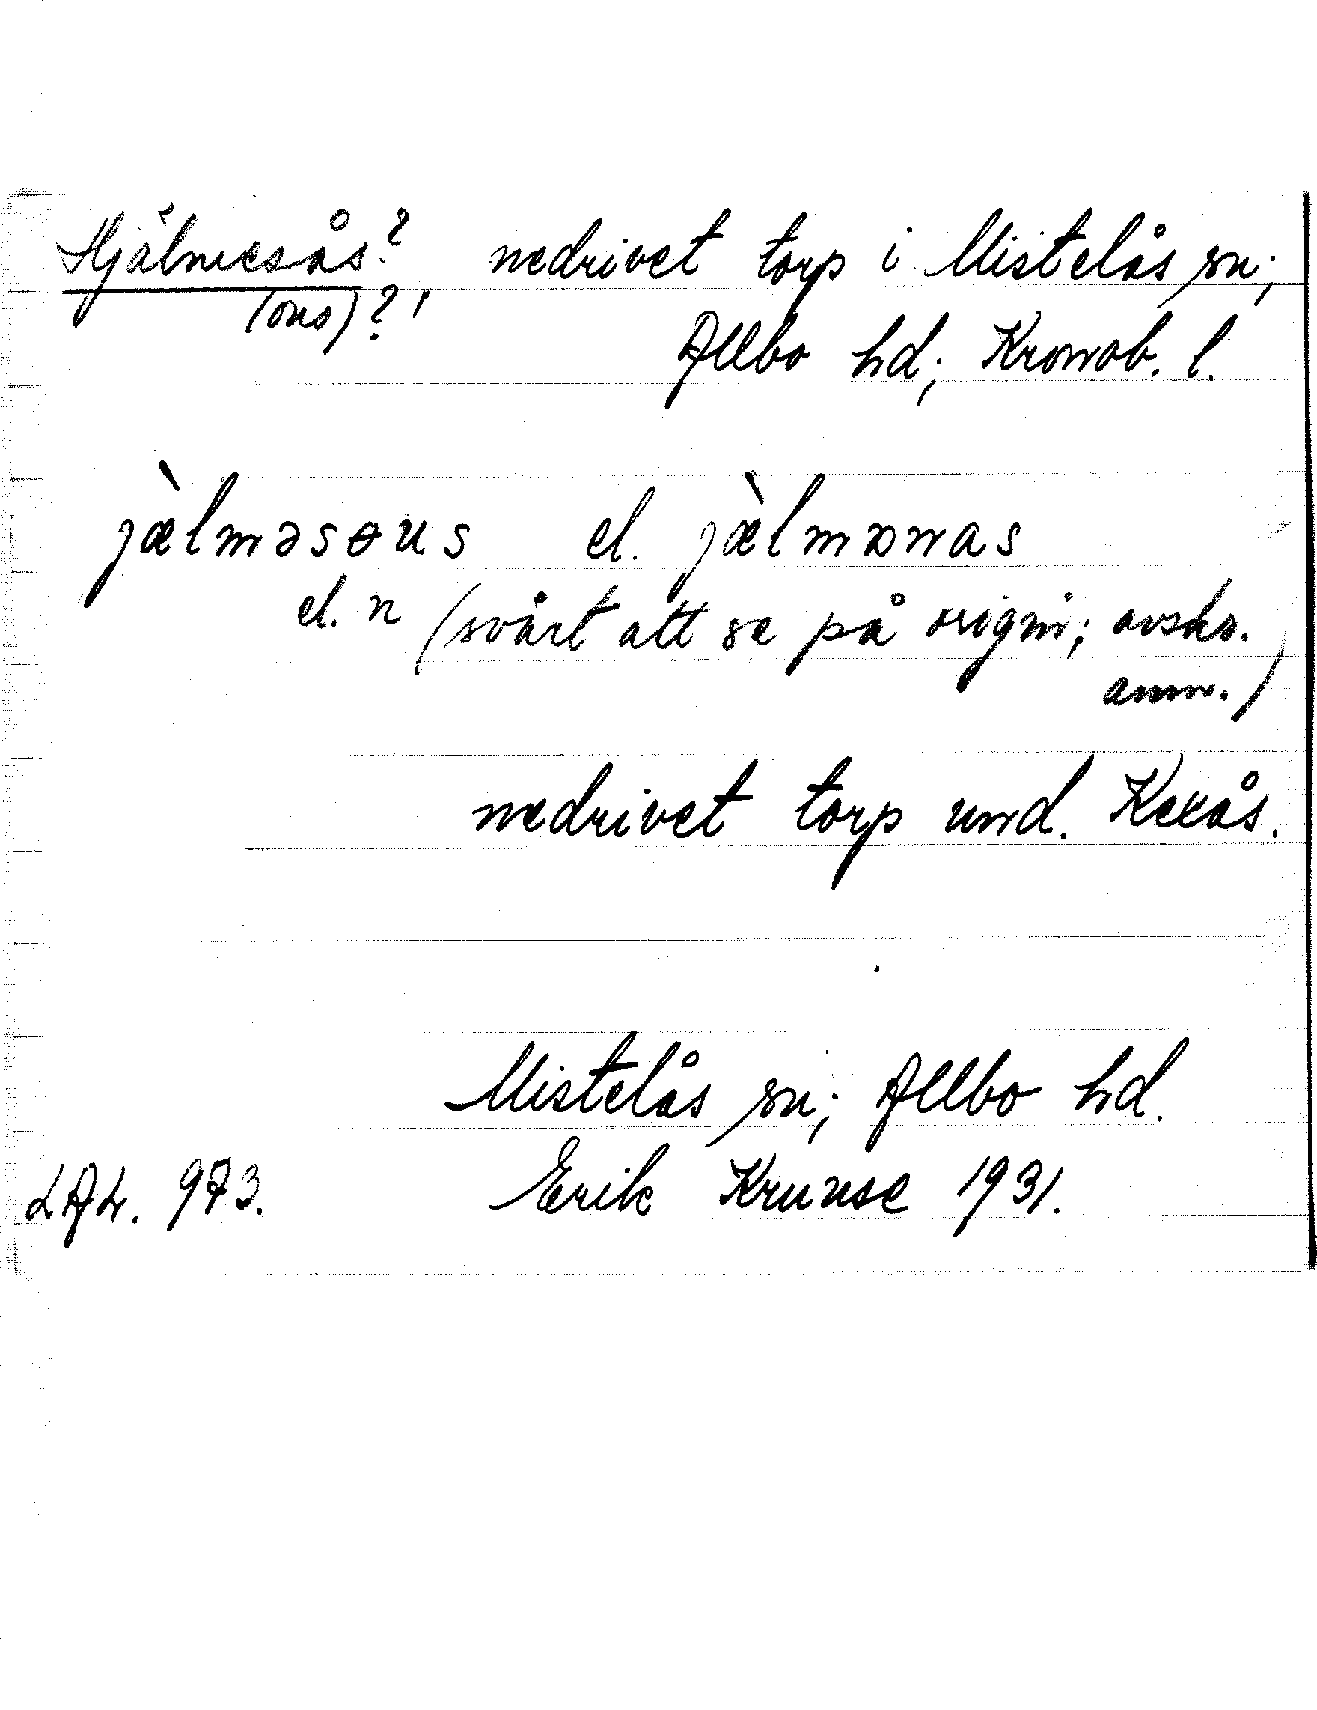 Hjälmesås? nedrivet torp i Mistelås sn;
(ons)?, Allbo hd; Kronob. l.
jæ̀lməsɵus el. jæ̀lmɔnas
el. n (svårt att se på origin; avskr.
anm.)
nedrivet torp und. Kexås.
Mistelås sn; Allbo hd.
LAL. 973. Erik Kruuse 1931.